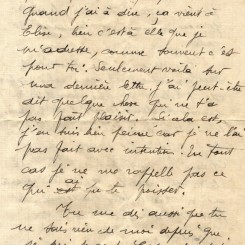 quand j'ai à dire, ça vient à
Elise, bien c'est à elle que je
m'adresse, comme souvent c'est
pour toi. Seulement voilà sur
ma dernière lettre j'ai peut-être
dit quelque chose qui ne t'a
pas fait plaisir. Si cela est,
j'en suis bien peinée car je ne l'ai
pas fait avec intention. En tout
cas je ne me rappelle pas ce
qui ai pu te
Tu me dis aussi que tu
ne sais rien de moi depuis que